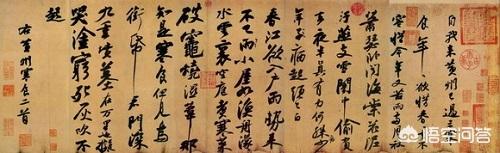 自我來黃州已過三寒
食年年欲惜春春去不
容惜今年又苦雨兩月秋
蕭瑟卧聞海棠花泥
汙燕支雪闇中偷負
去夜半真有力何殊少
年病起頭已白
春江欲入戶雨勢來
不已小屋如漁舟濛濛
水雲裏空庖煮寒菜
破竈燒濕葦那
知是寒食但見烏
銜帋君門深
九重墳墓在万里也擬
哭塗窮死灰吹不
起
右黃州寒食二首
悟空问答